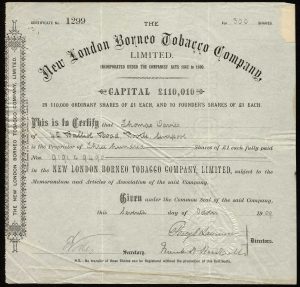 CERTIFICATE No. 1299
For 300 SHARES.
THE
New London Borneo Tobacco Company,
LIMITED.
INCORPORATED UNDER THE COMPANIES' ACTS 1862 TO 1900.
CAPITAL £110,010
IN 110,000 ORDINARY SHARES OF £1 EACH, AND 10 FOUNDER'S SHARES OF £1 EACH.
This is to Certify that Thomas
of Road
is the Proprietor of Three hundred Shares of £1 each fully paid
Nos.
in the NEW LONDON BORNEO TOBACCO COMPANY, LIMITED, subject to the
Memorandum and Articles of Association of the said Company.
Given under the Common Seal of the said Company,
this day of 19
Directors.
Secretary.
N.B.—No transfer of these Shares can be Registered without the production of this Certificate.
THE NEW LONDON BORNEO TOBACCO COMPANY, LIMITED.